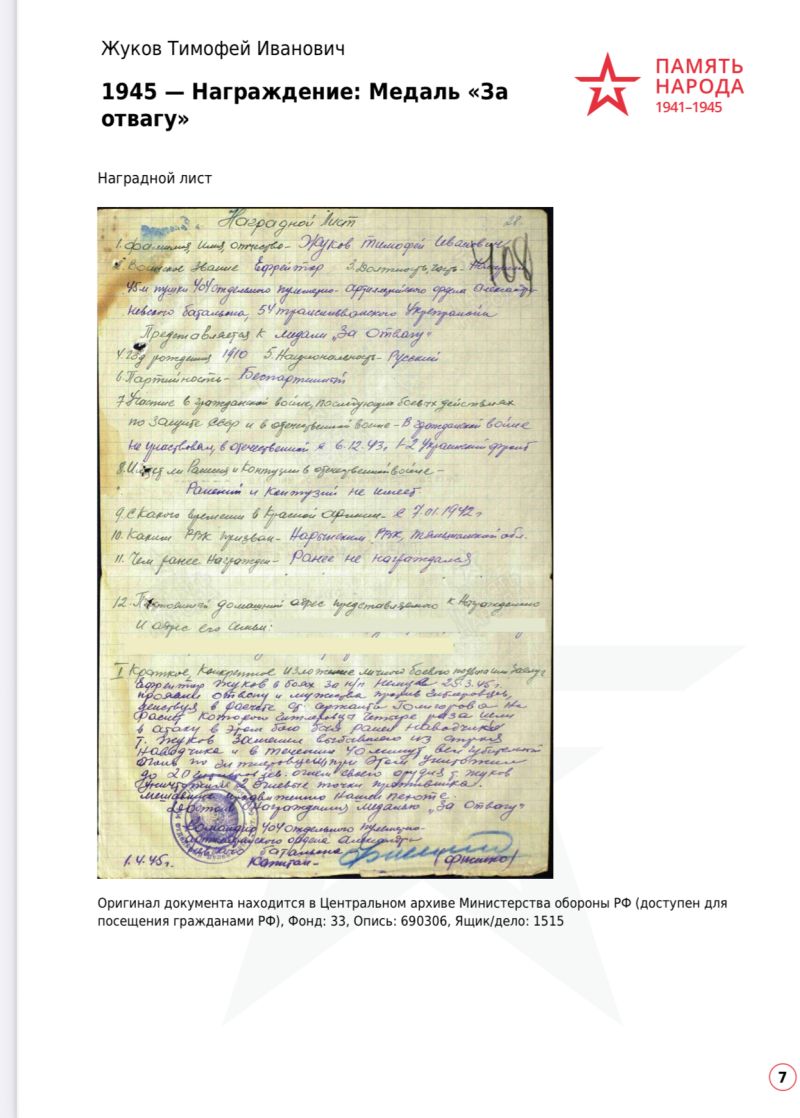 Жуков Тимофей Иванович
1945 — Награждение: Медаль «За
отвагу»
ПАМЯТЬ
НАРОДА
1941–1945
Наградной лист
Наградной Лист
28.
408
1. Фамилия, Имя, отчество - Жуков Тимофей Иванович
2. Воинское звание Ефрейтор 3. Должность, часть -
45мм пушки 404 отдельного пулеметно-артиллерийского ордена Александра
Невского батальона, 54 Укрепрайона
Представляется к медали „За Отвагу“
4. Год рождения 1910 5. Национальность - Русский
6. Партийность - Беспартийный
7. Участие в гражданской войне, последующих боевых действиях
по защите СССР и в отечественной войне - В гражданской войне
не участвовал, в отечественной с 6.12.43г. 1-2 Украинский фронт
8. Имеет ли Ранения и Контузии в отечественной войне -
Ранений и контузий не имеет.
9. С Какого времени в Красной Армии - с 7.01.1942г
10. Каким РВК призван - РВК,
11. Чем ранее Награжден - Ранее не награждался
12. Постоянный домашний адрес представляемого к Награждению
И адрес его Семьи:
I Краткое, Конкретное изложение личного боевого подвига или Заслуг
Ефрейтор Жуков в боях за н/п 25.3.45г.
проявил отвагу и мужество против гитлеровцев,
действуя в расчете сержанта
которого гитлеровцы четыре раза шли
в атаку в этом бою был ранен наводчик
т. Жуков Заменил выбывшего из строя
Наводчика и в течении 40 минут вел губительный
огонь по гитлеровцам при этом уничтожил
до 20 гитлеровцев. огнем своего орудия т. Жуков
уничтожил 2 огневые точки противника.
мешавшие продвижению нашей пехоте.
Достоин Награждения медалью „За отвагу“
Командир 404 отдельного пулеметно-
артиллерийского ордена Александра
Невского батальона
1.4.45г. Капитан -
Оригинал документа находится в Центральном архиве Министерства обороны РФ (доступен для
посещения гражданами РФ), Фонд: 33, Опись: 690306, Ящик/дело: 1515
7